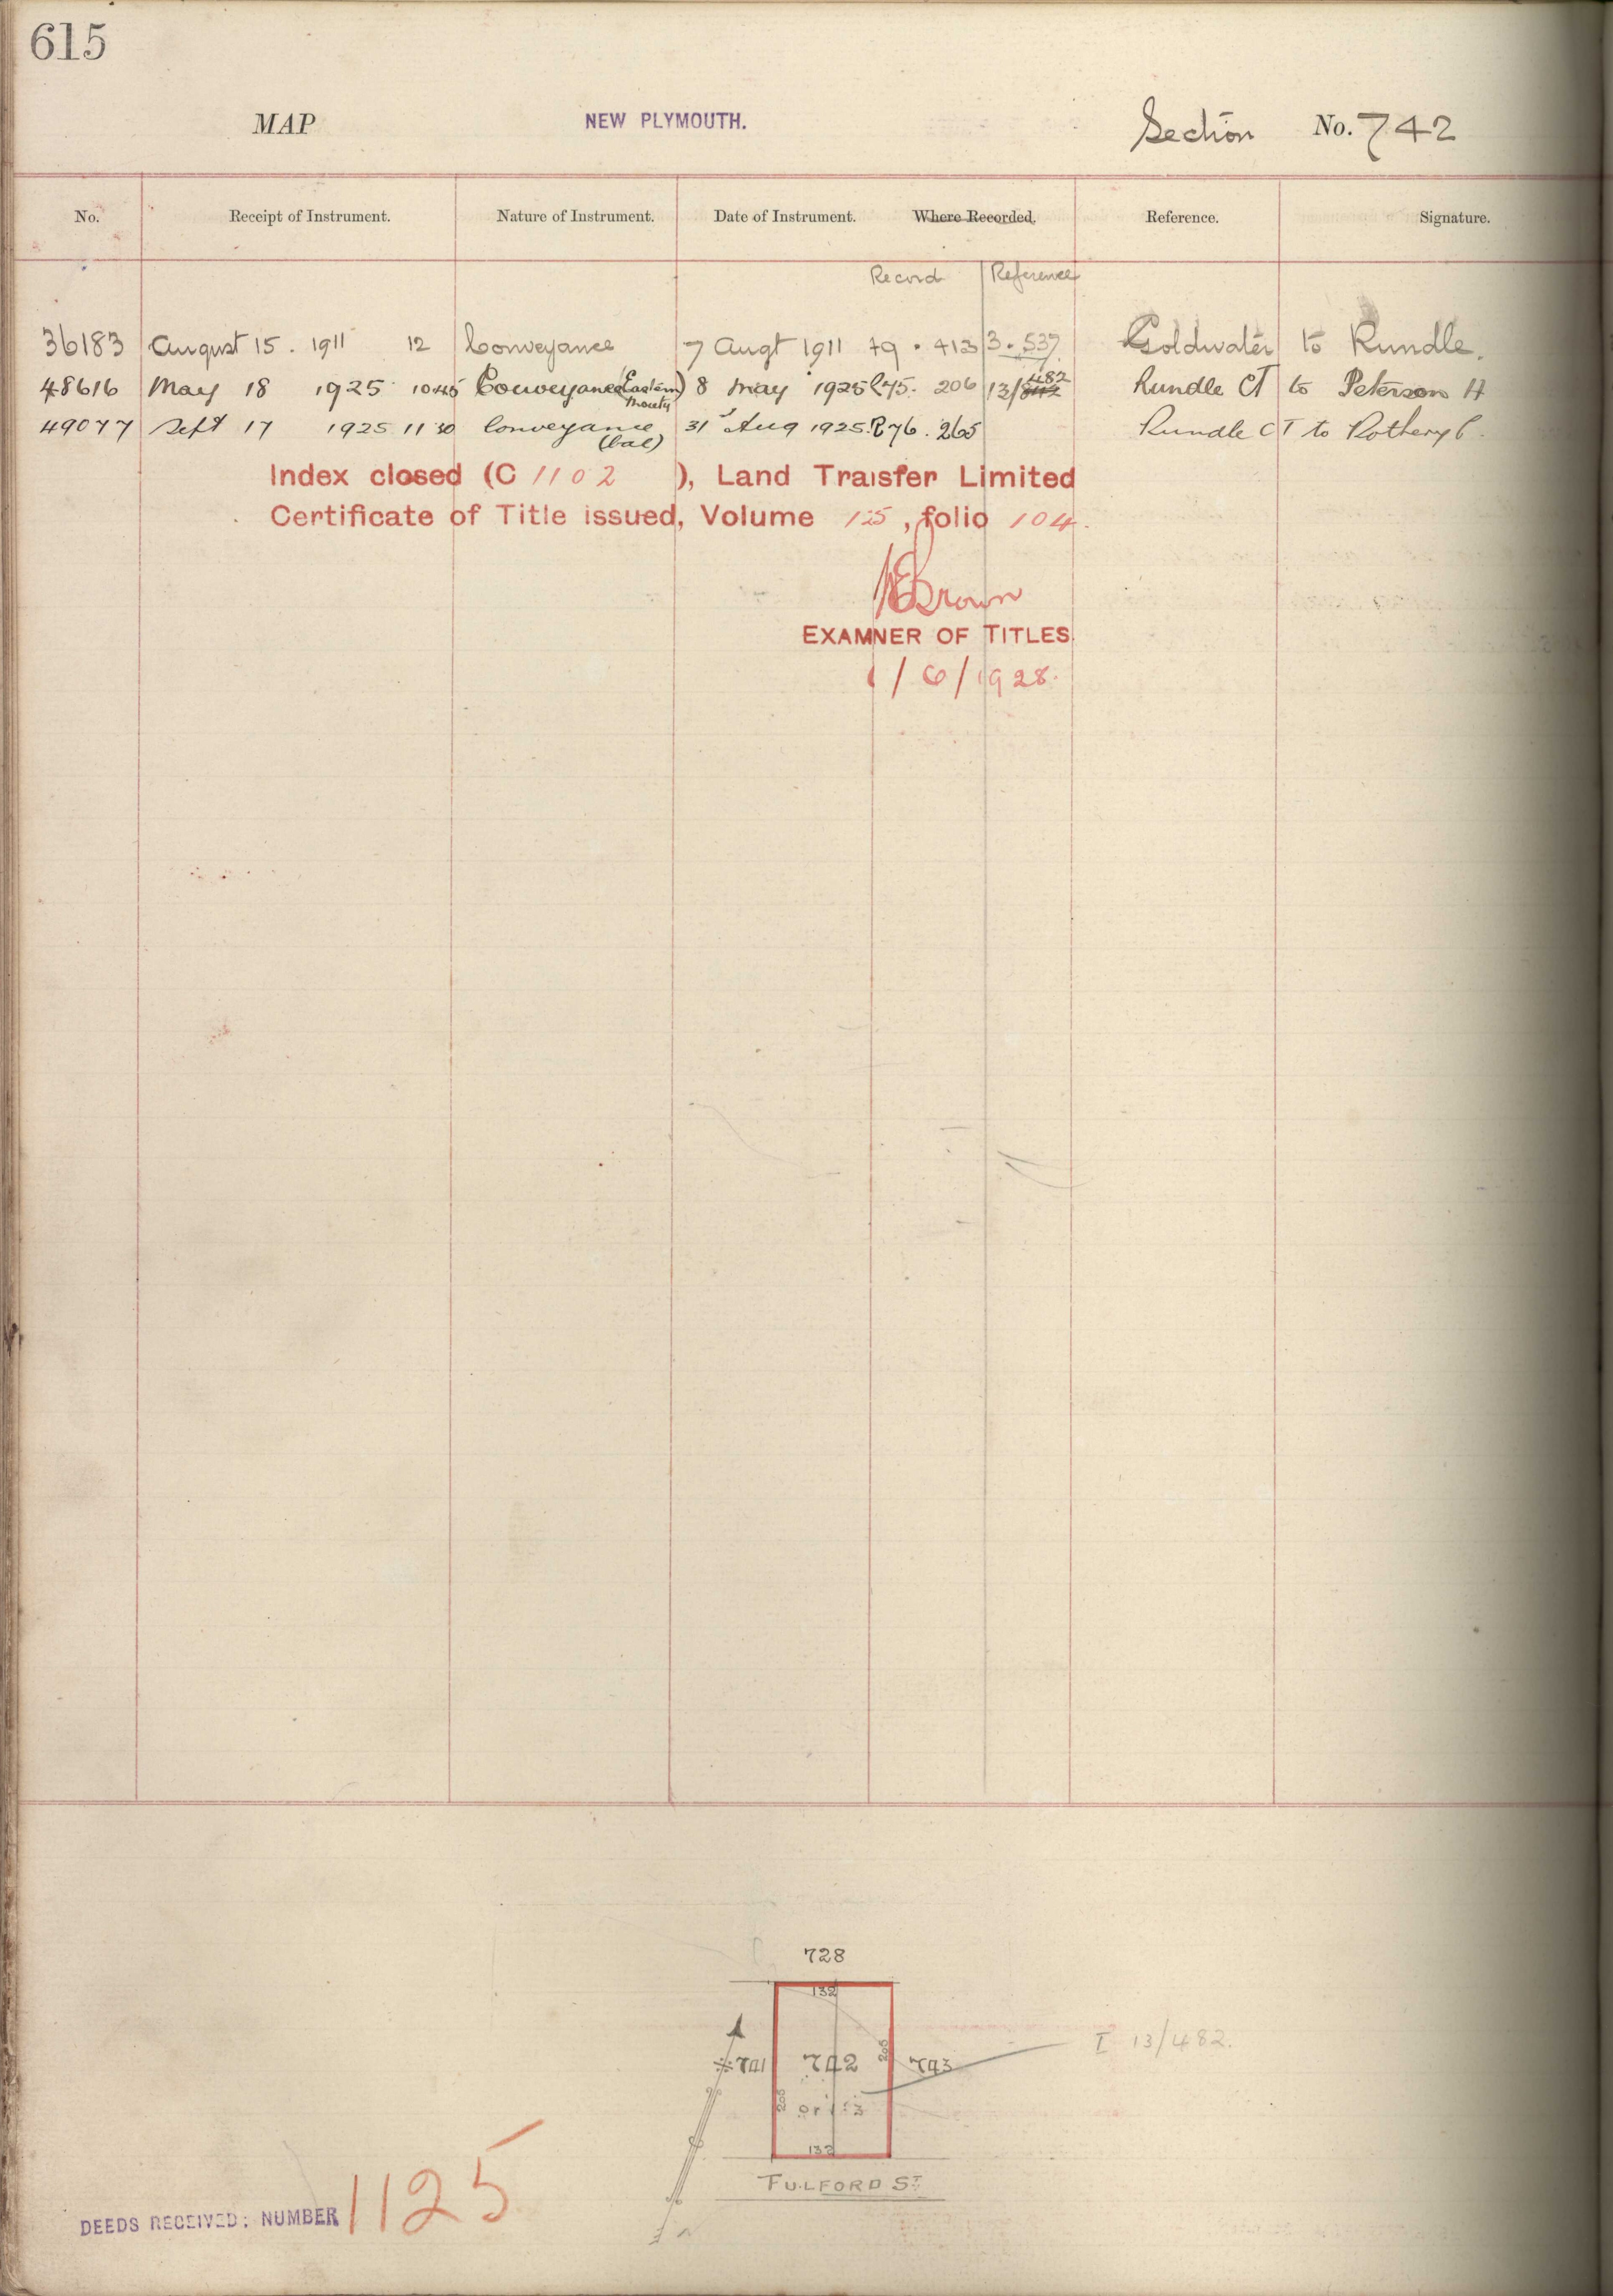 615
MAP NEW PLYMOUTH. Section No. 742
No. Receipt of Instrument. Nature of Instrument. Date of Instrument. Where Recorded. Reference. Signature.
Record Reference
36183 August 15. 1911 12 Conveyance 7 Augt 1911 79 . 413 3 . 537 Goldwater to Rundle.
48616 May 18 1925 1045 Conveyance (Eastern Moiety) 8 May 1925 R75. 206 13/482 Rundle CT to Peterson H
49077 Sept 17 1925 11 30 Conveyance (bal) 31st Aug 1925. R76. 265 Rundle CT to Rothery C.
Index closed (C 1102 ), Land Transfer Limited
Certificate of Title issued, Volume 125, folio 104.
Brown
EXAMINER OF TITLES
1/6/1928.
728
132
I 13/482.
741 742 206 743
206 0r 1:3
132
FULFORD ST.
DEEDS RECEIVED: NUMBER 1125